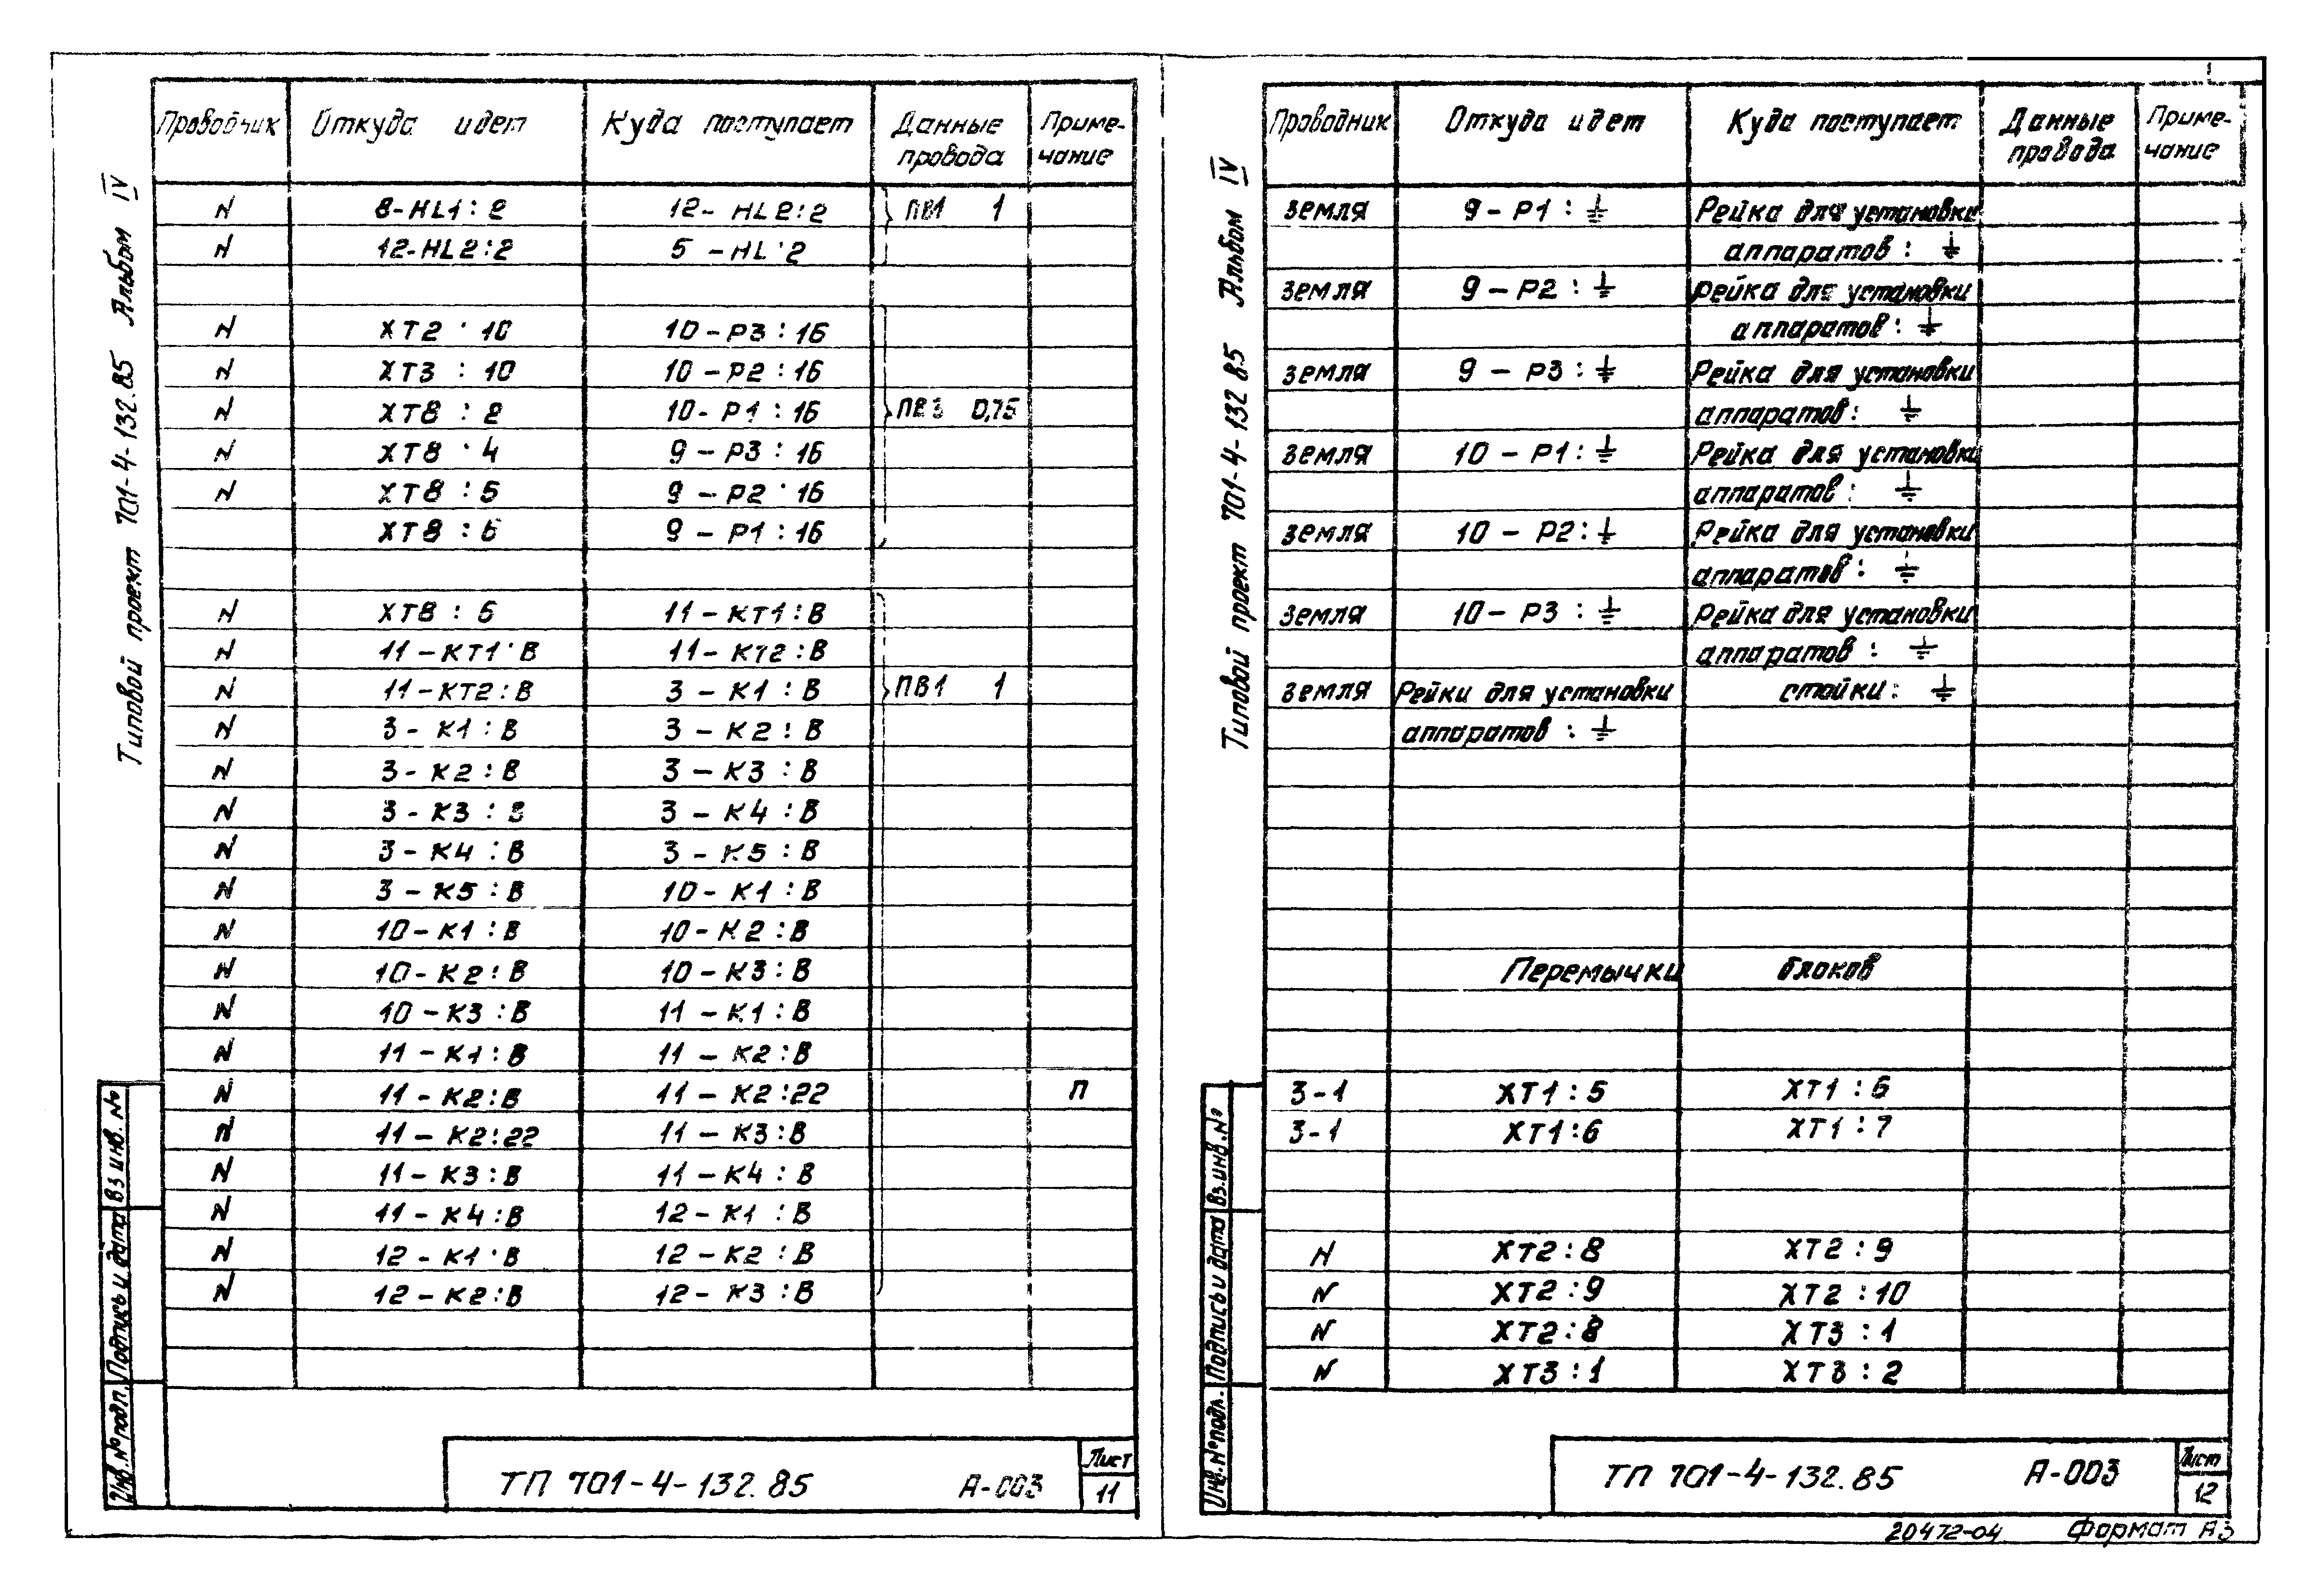 Типовой проект 701-4-132.85 Альбом IV
Проводник Откуда идет Куда поступает Данные провода Приме-чание
N 8-HL1:2 12-HL2:2 ПВ1 1
N 12-HL2:2 5-HL:2
N XT2:10 10-P3:16
N XT3:10 10-P2:16
N XT8:2 10-P1:16 ПВ3 0,75
N XT8:4 9-P3:16
N XT8:5 9-P2:16
XT8:6 9-P1:16
N XT8:6 11-KT1:B
N 11-KT1:B 11-KT2:B
N 11-KT2:B 3-K1:B ПВ1 1
N 3-K1:B 3-K2:B
N 3-K2:B 3-K3:B
N 3-K3:B 3-K4:B
N 3-K4:B 3-K5:B
N 3-K5:B 10-K1:B
N 10-K1:B 10-K2:B
N 10-K2:B 10-K3:B
N 10-K3:B 11-K1:B
N 11-K1:B 11-K2:B
N 11-K2:B 11-K2:22 П
N 11-K2:22 11-K3:B
N 11-K3:B 11-K4:B
N 11-K4:B 12-K1:B
N 12-K1:B 12-K2:B
N 12-K2:B 12-K3:B
Инв.№ подл. Подпись и дата Вз инв. №
ТП 701-4-132.85 А-003 Лист 11
Типовой проект 701-4-132 85 Альбом IV
Проводник Откуда идет Куда поступает Данные провода Приме-чание
земля 9-P1:⏚ Рейка для установки
аппаратов:⏚
земля 9-P2:⏚ Рейка для установки
аппаратов:⏚
земля 9-P3:⏚ Рейка для установки
аппаратов:⏚
земля 10-P1:⏚ Рейка для установки
аппаратов:⏚
земля 10-P2:⏚ Рейка для установки
аппаратов:⏚
земля 10-P3:⏚ Рейка для установки
аппаратов:⏚
земля Рейки для установки стойки:⏚
аппаратов:⏚
Перемычки блоков
3-1 XT1:5 XT1:6
3-1 XT1:6 XT1:7
N XT2:8 XT2:9
N XT2:9 XT2:10
N XT2:8 XT3:1
N XT3:1 XT3:2
Инв.№ подл. Подпись и дата Вз.инв.№
ТП 701-4-132.85 А-003 Лист 12
20472-04 Формат А3